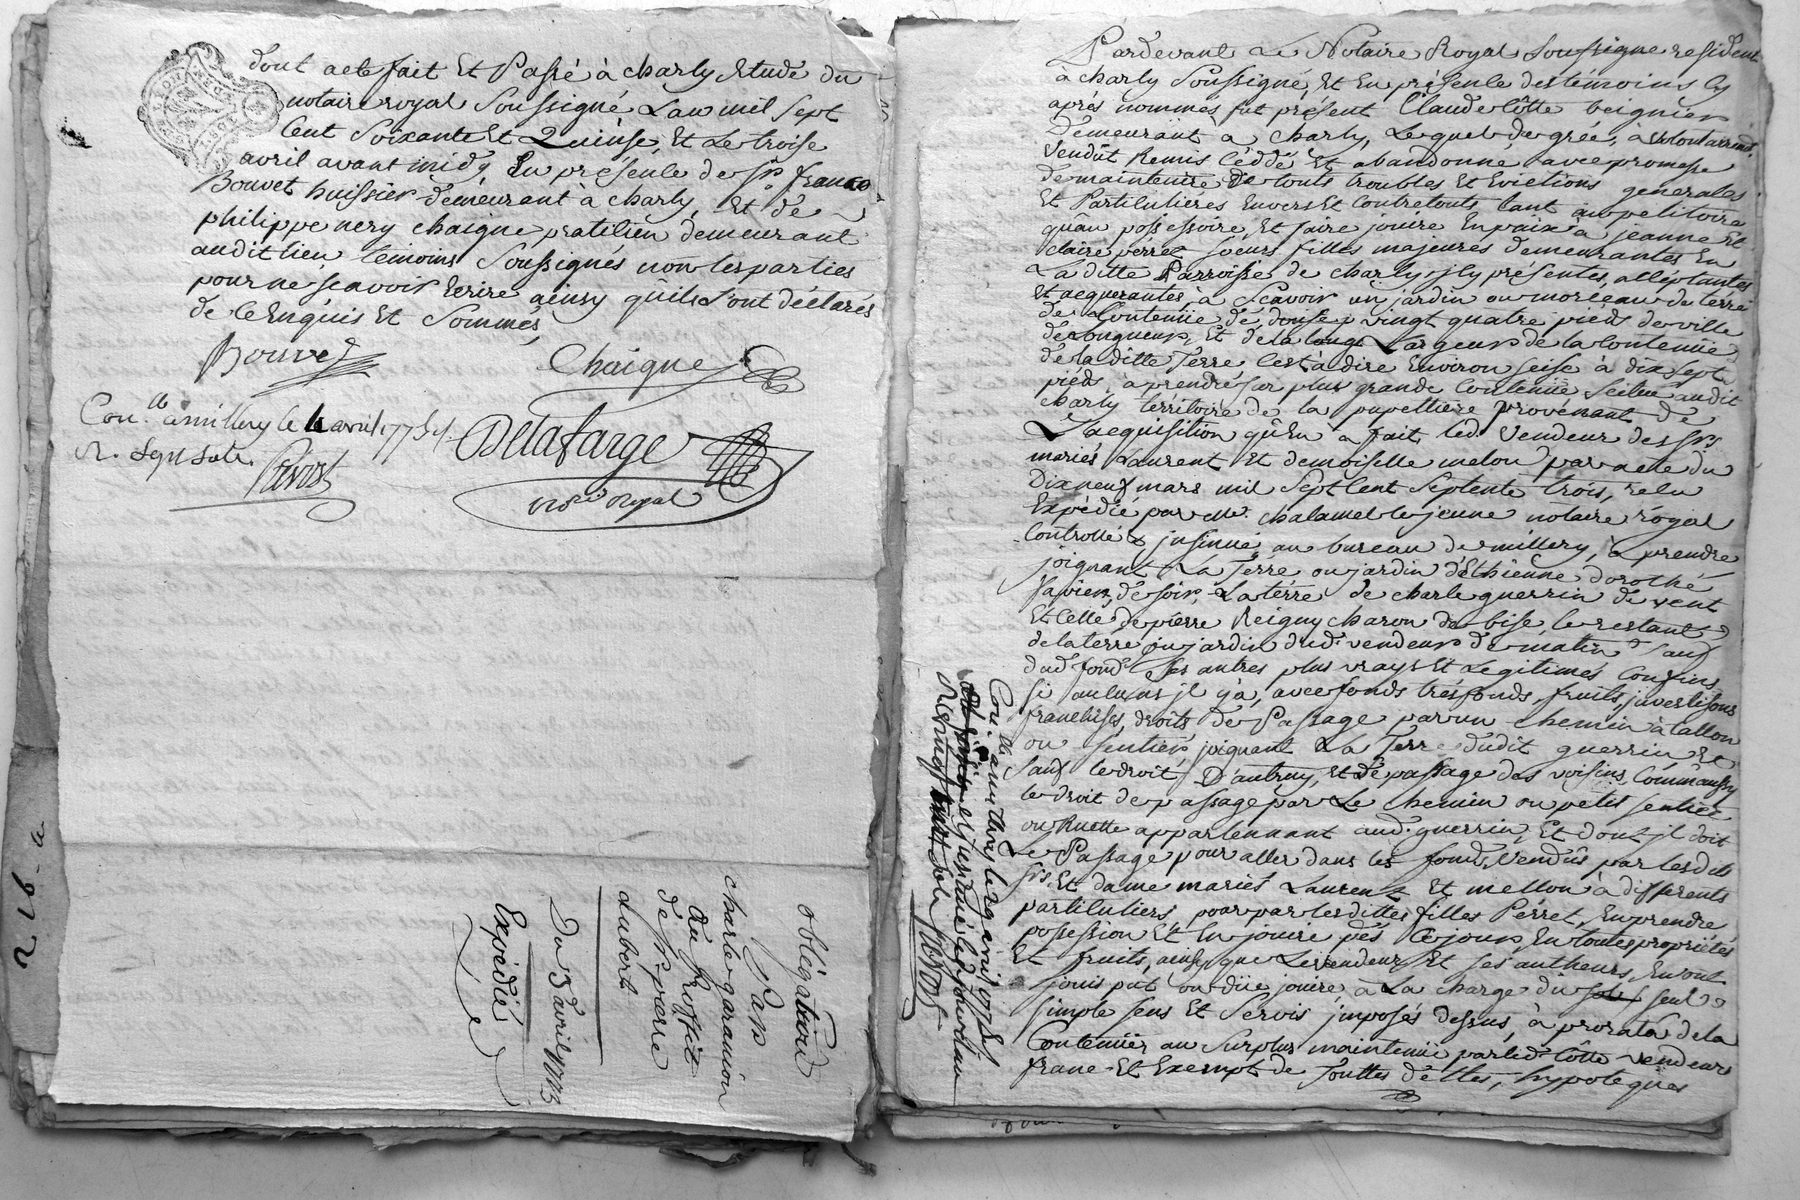 dont acte fait Et Passé à charly Etude du
notaire royal Soussigné Lan mil Sept
Cent Soixante Et Quinse, Et Le troise
avril avant midy En présence de Sr. francs
Bouvet huissier demeurant à charly Et de
philippe nery chaigne praticien demeurant
audit lieu, témoins Soussignés non les parties
pour ne scavoir Ecrire ainsy qu'ils l'ont déclarés
de ce Enquis Et Sommés
Bouvet
Chaigne
Con.lé a millery le 4 avril 1775
R. Sept Sols
Prevost
Delafarge
No.re Royal
obligation
Par
charle garanion
Au Proffit
de Sr. pierre
aubert
Du 3 avril 1775
Expédié
226
Pardevant Le Notaire Royal Soussigné resident
à charly Soussigné, Et En présence des témoins cy
après nommés fut présent Claude Côtte beignier
Demeurant à Charly, Lequel de gré, à volontairemt.
Vendût Remis Céddé Et abandonné avec promesse
de maintenire de touts troubles Et Evictions generales
Et Particulieres Envers Et Contre touts tant au petitoire
qu'au possessoire, Et faire jouire En paix à jeanne Et
claire pérret soeurs filles majeures demeurantes En
La ditte Parroisse de charly, jcy présentes, acceptantes
Et acquerantes, à Scavoir un jardin ou morceau de terre
de Contenüe de douse, vingt quatre pieds de ville
de Longueur, Et de la Largeur de la Contenüe
de la ditte Terre C'est à dire Environ seise à dix sept
pieds, à prendre sur plus grande Contenüe Scitué audit
charly térritoire de la pupelliere provenant de
L'acquisition qu'En à fait led. Vendeur des Srs
mariés Laurent Et demoiselle melon par acte du
Dix neuf mars mil Sept Cent Septente trois, recu
Expédié par Me. chalamel le jeune notaire royal
Controllé & jnsinué au bureau de millery, à prendre
joignant La Terre ou jardin d'Ethienne dorothé
de soir, La térre de charle guerrin de vent
Et Celle de pierre Reigny charon de bise, le restant
de la terre ou jardin dud. vendeur de matin Sauf
dud. fond Ses autres plus vrays Et Legitimes Confins
Si aulcuns jl y à, avec fonds tréfonds, fruits,
franchises, droits de Passage par un chemin à tallon
ou sentier, joignant La Terre dudit guerrin Et
Sauf le droit D'autruy, Et de passage des voisins, Comm'aussy
le droit de passage par Le chemin ou petit sentier
ou Ruette appartennant aud. guerrin, Et dont jl doit
Le Passage pour aller dans les fonds, Vendus par lesdits
Srs. Et dame mariés Laurent Et mellon à différents
particuliers, pour par les dittes filles Pérret, En prendre
possession Et En jouire dès Ce jour, En toutes propriétés
Et fruits, ainsy que Le vendeur Et Ses autheurs, En ont
jouis put ou dûe jouire, à La charge du seul
simple sens Et Servis jmposés dessus, à prorata de la
Contenüe au Surplus maintenüe par led. Côtte vendeur
franc Et Exempt de Touttes dettes, hypoteques
Con.lé a millery le 4 avril 1775
et jnsinué led. jour
Prevost